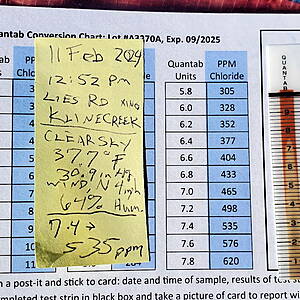 Quantab Conversion Chart: Lot #A3370A, Exp. 09/2025
Quantab Units PPM Chloride
5.8 305
6.0 328
6.2 352
6.4 377
6.6 404
6.8 433
7.0 465
7.2 498
7.4 535
7.6 576
7.8 620
11 Feb 2024
12:52 pm
LIES RD XING
KLINECREEK
CLEARSKY
37.7°F
30.9 in Hg
WIND, N 4 mph
64% Hum.
7.4 →
535 ppm
QUANTAB
n a post-it and stick to card: date and time of sample, results of test
mpleted test strip in black box and take a picture of card to report wi